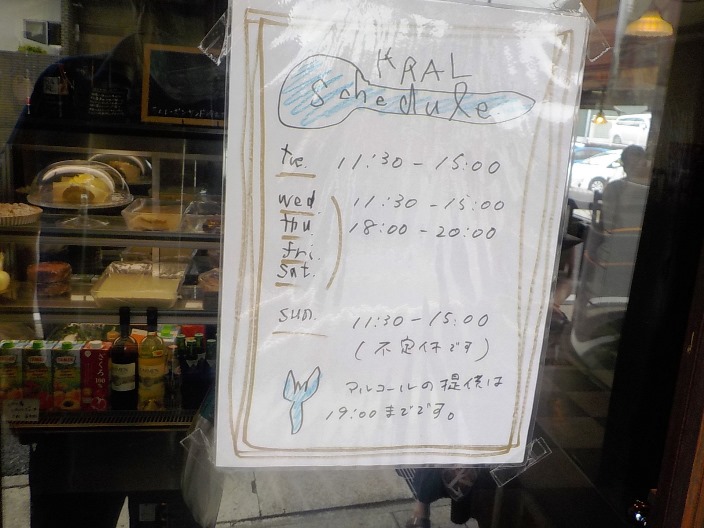 KRAL
Schedule
tue. 11:30-15:00
wed 11:30-15:00
thu 18:00-20:00
fri.
sat.
sun. 11:30-15:00
(不定休です)
アルコールの提供は
19:00までです。
ざくろ
100